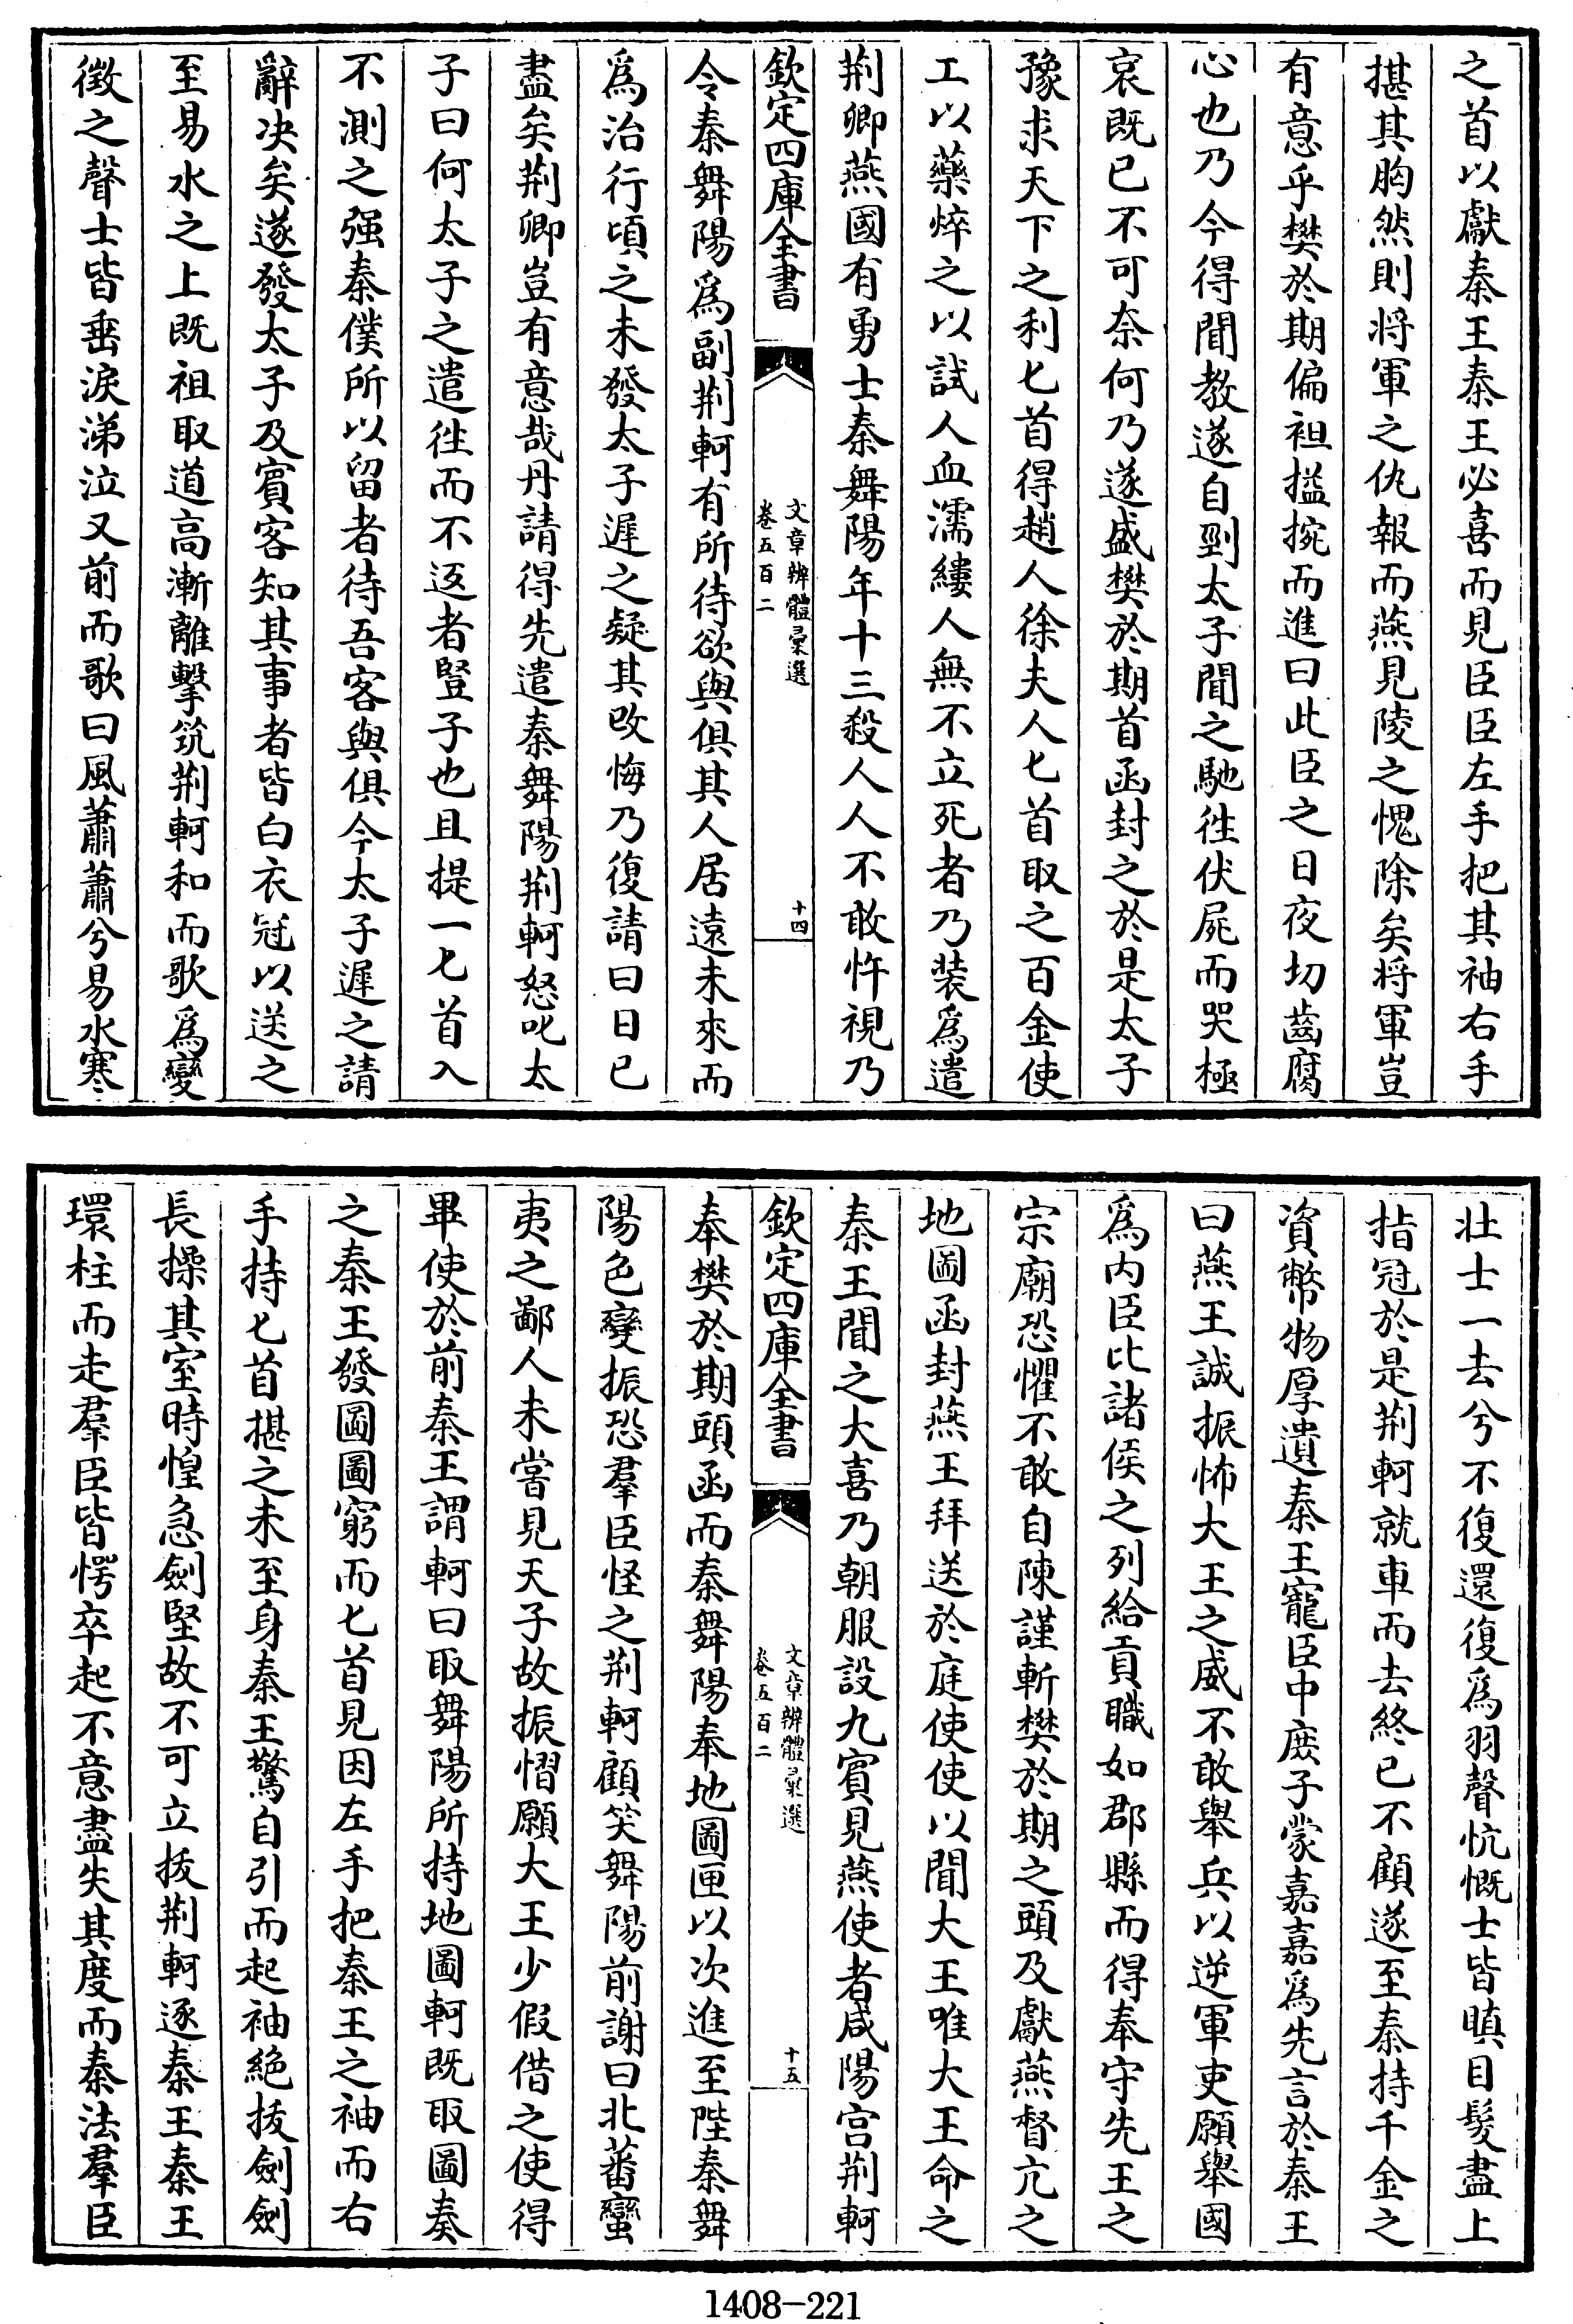 之首以獻秦王秦王必喜而見臣臣左手把其袖右手
揕其胸然則將軍之仇報而燕見陵之愧除矣将軍豈
有意乎樊於期偏袒搤捥而進曰此臣之日夜切齒腐
心也乃今得聞教遂自剄太子聞之馳徃伏屍而哭極
哀既已不可奈何乃遂盛樊於期首函封之於是太子
豫求天下之利匕首得趙人徐夫人匕首取之百金使
工以藥焠之以試人血濡縷人無不立死者乃装爲遣
荆卿燕國有勇士秦舞陽年十三殺人人不敢忤視乃
欽定四庫全書
文章辨體彙選
卷五百二
十四
令秦舞陽爲副荆軻有所待欲與俱其人居遠未來而
爲治行頃之未發太子遲之疑其改悔乃復請曰日已
盡矣荆卿豈有意哉丹請得先遣秦舞陽荆軻怒叱太
子曰何太子之遣徃而不返者豎子也且提一匕首入
不測之强秦僕所以留者待吾客與俱今太子遲之請
辭决矣遂發太子及賓客知其事者皆白衣冠以送之
至易水之上既祖取道高漸離擊筑荆軻和而歌爲變
徵之聲士皆垂淚涕泣又前而歌曰風蕭蕭兮易水寒
壮士一去兮不復還復爲羽聲忼慨士皆瞋目髮盡上
指冠於是荆軻就車而去終已不顧遂至秦持千金之
資幣物厚遺秦王寵臣中庶子蒙嘉嘉爲先言於秦王
曰燕王誠振怖大王之威不敢舉兵以逆軍吏願舉國
爲内臣比諸侯之列給貢職如郡縣而得奉守先王之
宗廟恐懼不敢自陳謹斬樊於期之頭及獻燕督亢之
地圖函封燕王拜送於庭使使以聞大王唯大王命之
秦王聞之大喜乃朝服設九賓見燕使者咸陽宫荆軻
欽定四庫全書
文章辨體彙選
卷五百二
十五
奉樊於期頭函而秦舞陽奉地圖匣以次進至陛秦舞
陽色變振恐羣臣怪之荆軻顧笑舞陽前謝曰北蕃蠻
夷之鄙人未嘗見天子故振慴願大王少假借之使得
畢使於前秦王謂軻曰取舞陽所持地圖軻既取圖奏
之秦王發圖圖窮而匕首見因左手把秦王之袖而右
手持匕首揕之未至身秦王驚自引而起袖絶拔劍劍
長操其室時惶急劍堅故不可立拔荆軻逐秦王秦王
環柱而走羣臣皆愕卒起不意盡失其度而秦法羣臣
1408-221